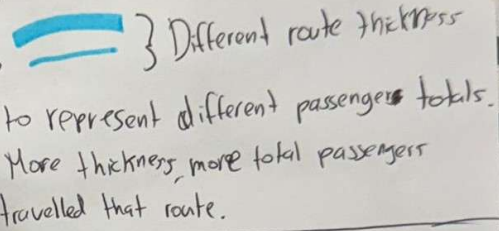 } Different route thickness
to represent different passenger totals.
More thickness, more total passengers
travelled that route.